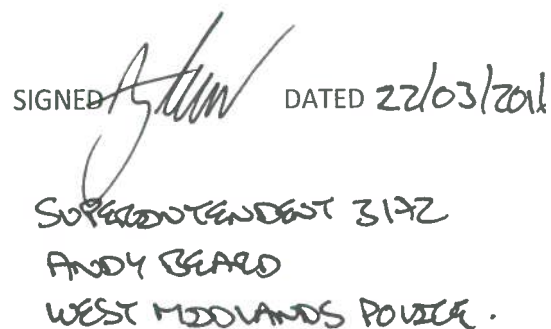 SIGNED DATED 22/03/2016
SUPERINTENDENT 3172
ANDY BEARD
WEST MIDLANDS POLICE.